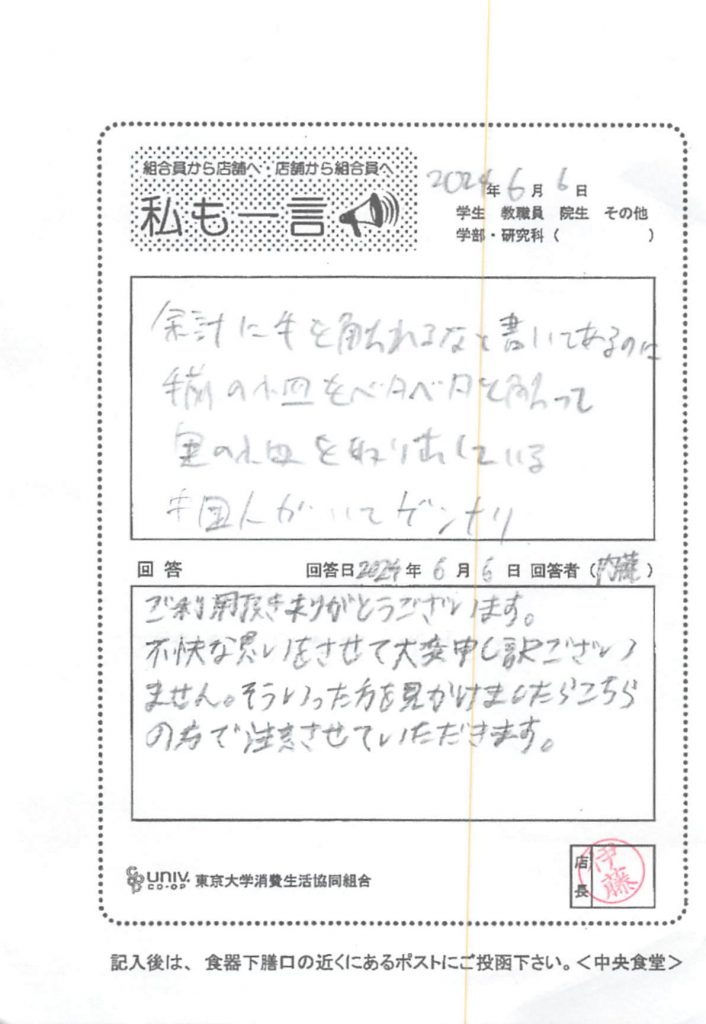 組合員から店舗へ・店舗から組合員へ
私も一言
2024年6月6日
学生 教職員 院生 その他
学部・研究科（ ）
余計に手を触れるなと書いてあるのに
手前の小皿をベタベタと触って
奥の小皿を取り出している
中国人がいてゲンナリ
回答 回答日2024年6月6日 回答者（内藤）
ご利用頂きありがとうございます。
不快な思いをさせて大変申し訳ござい
ません。そういった方を見かけましたらこちら
の方で注意させていただきます。
UNIV. CO-OP 東京大学消費生活協同組合
店長 伊藤
記入後は、食器下膳口の近くにあるポストにご投函下さい。＜中央食堂＞